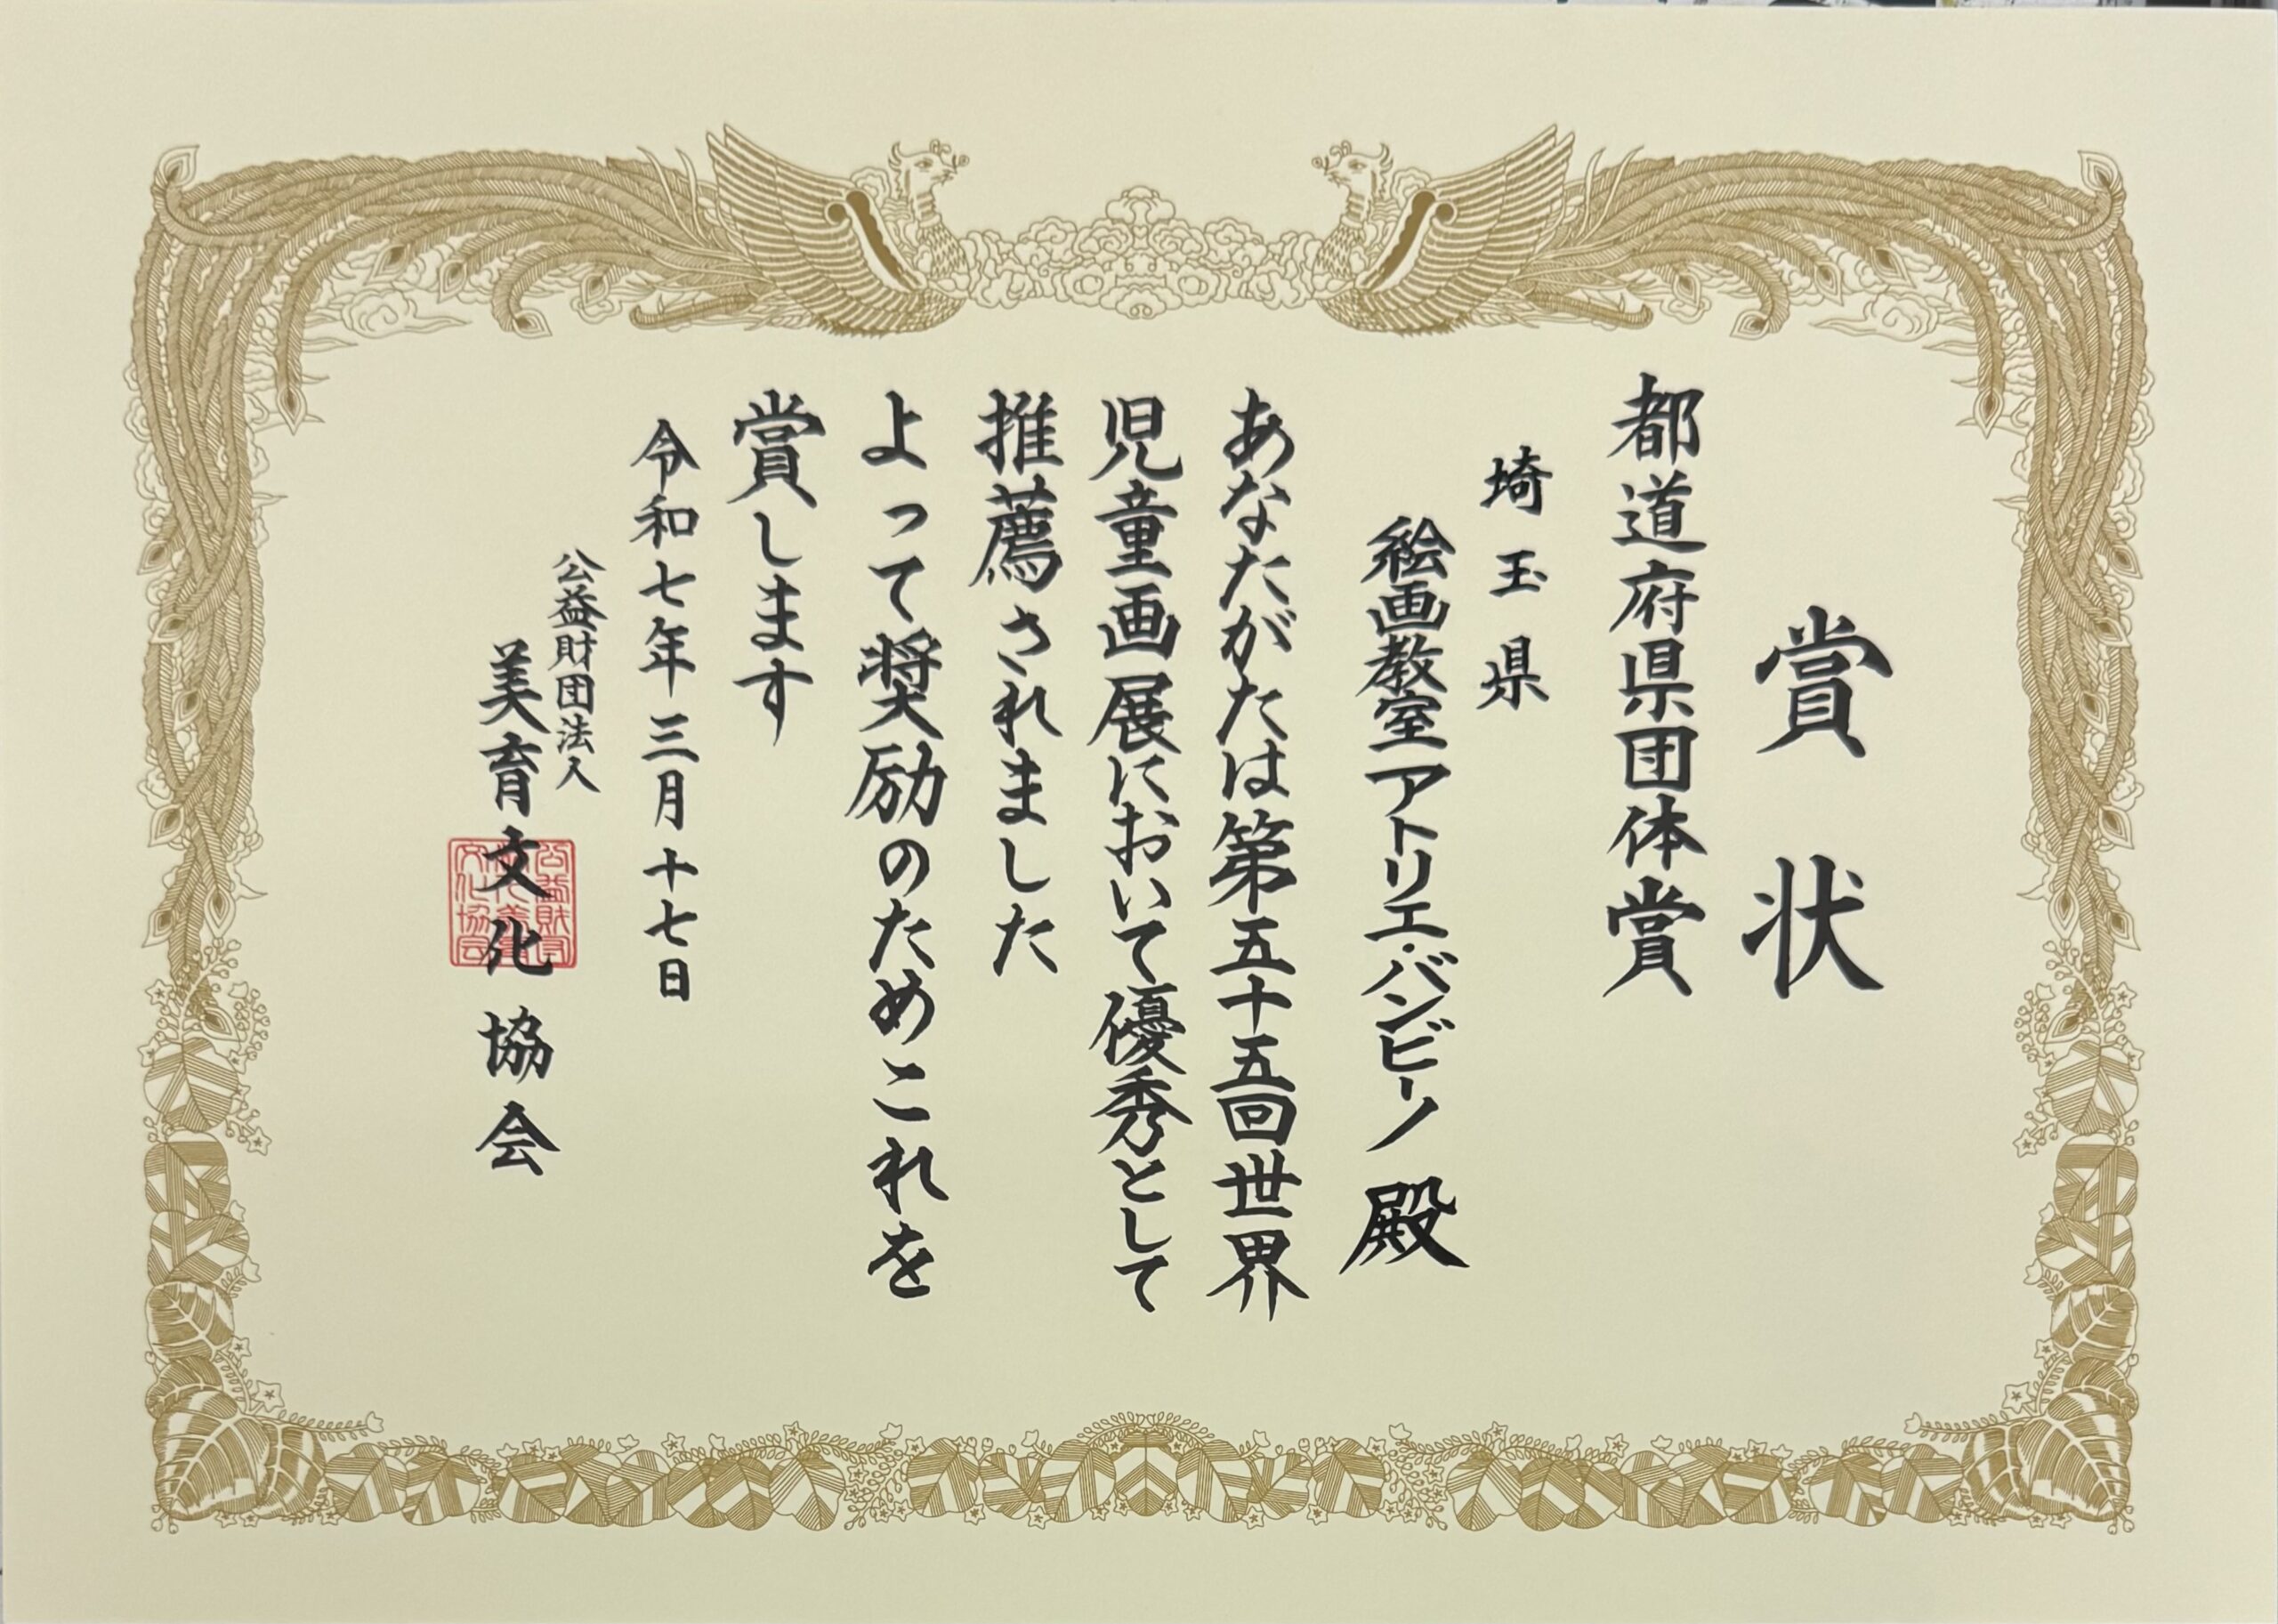 賞状
都道府県団体賞
埼玉県
絵画教室アトリエ・バンビーノ殿
あなたがたは第五十五回世界
児童画展において優秀として
推薦されました
よって奨励のためこれを
賞します
令和七年三月十七日
公益財団法人
美育文化協会